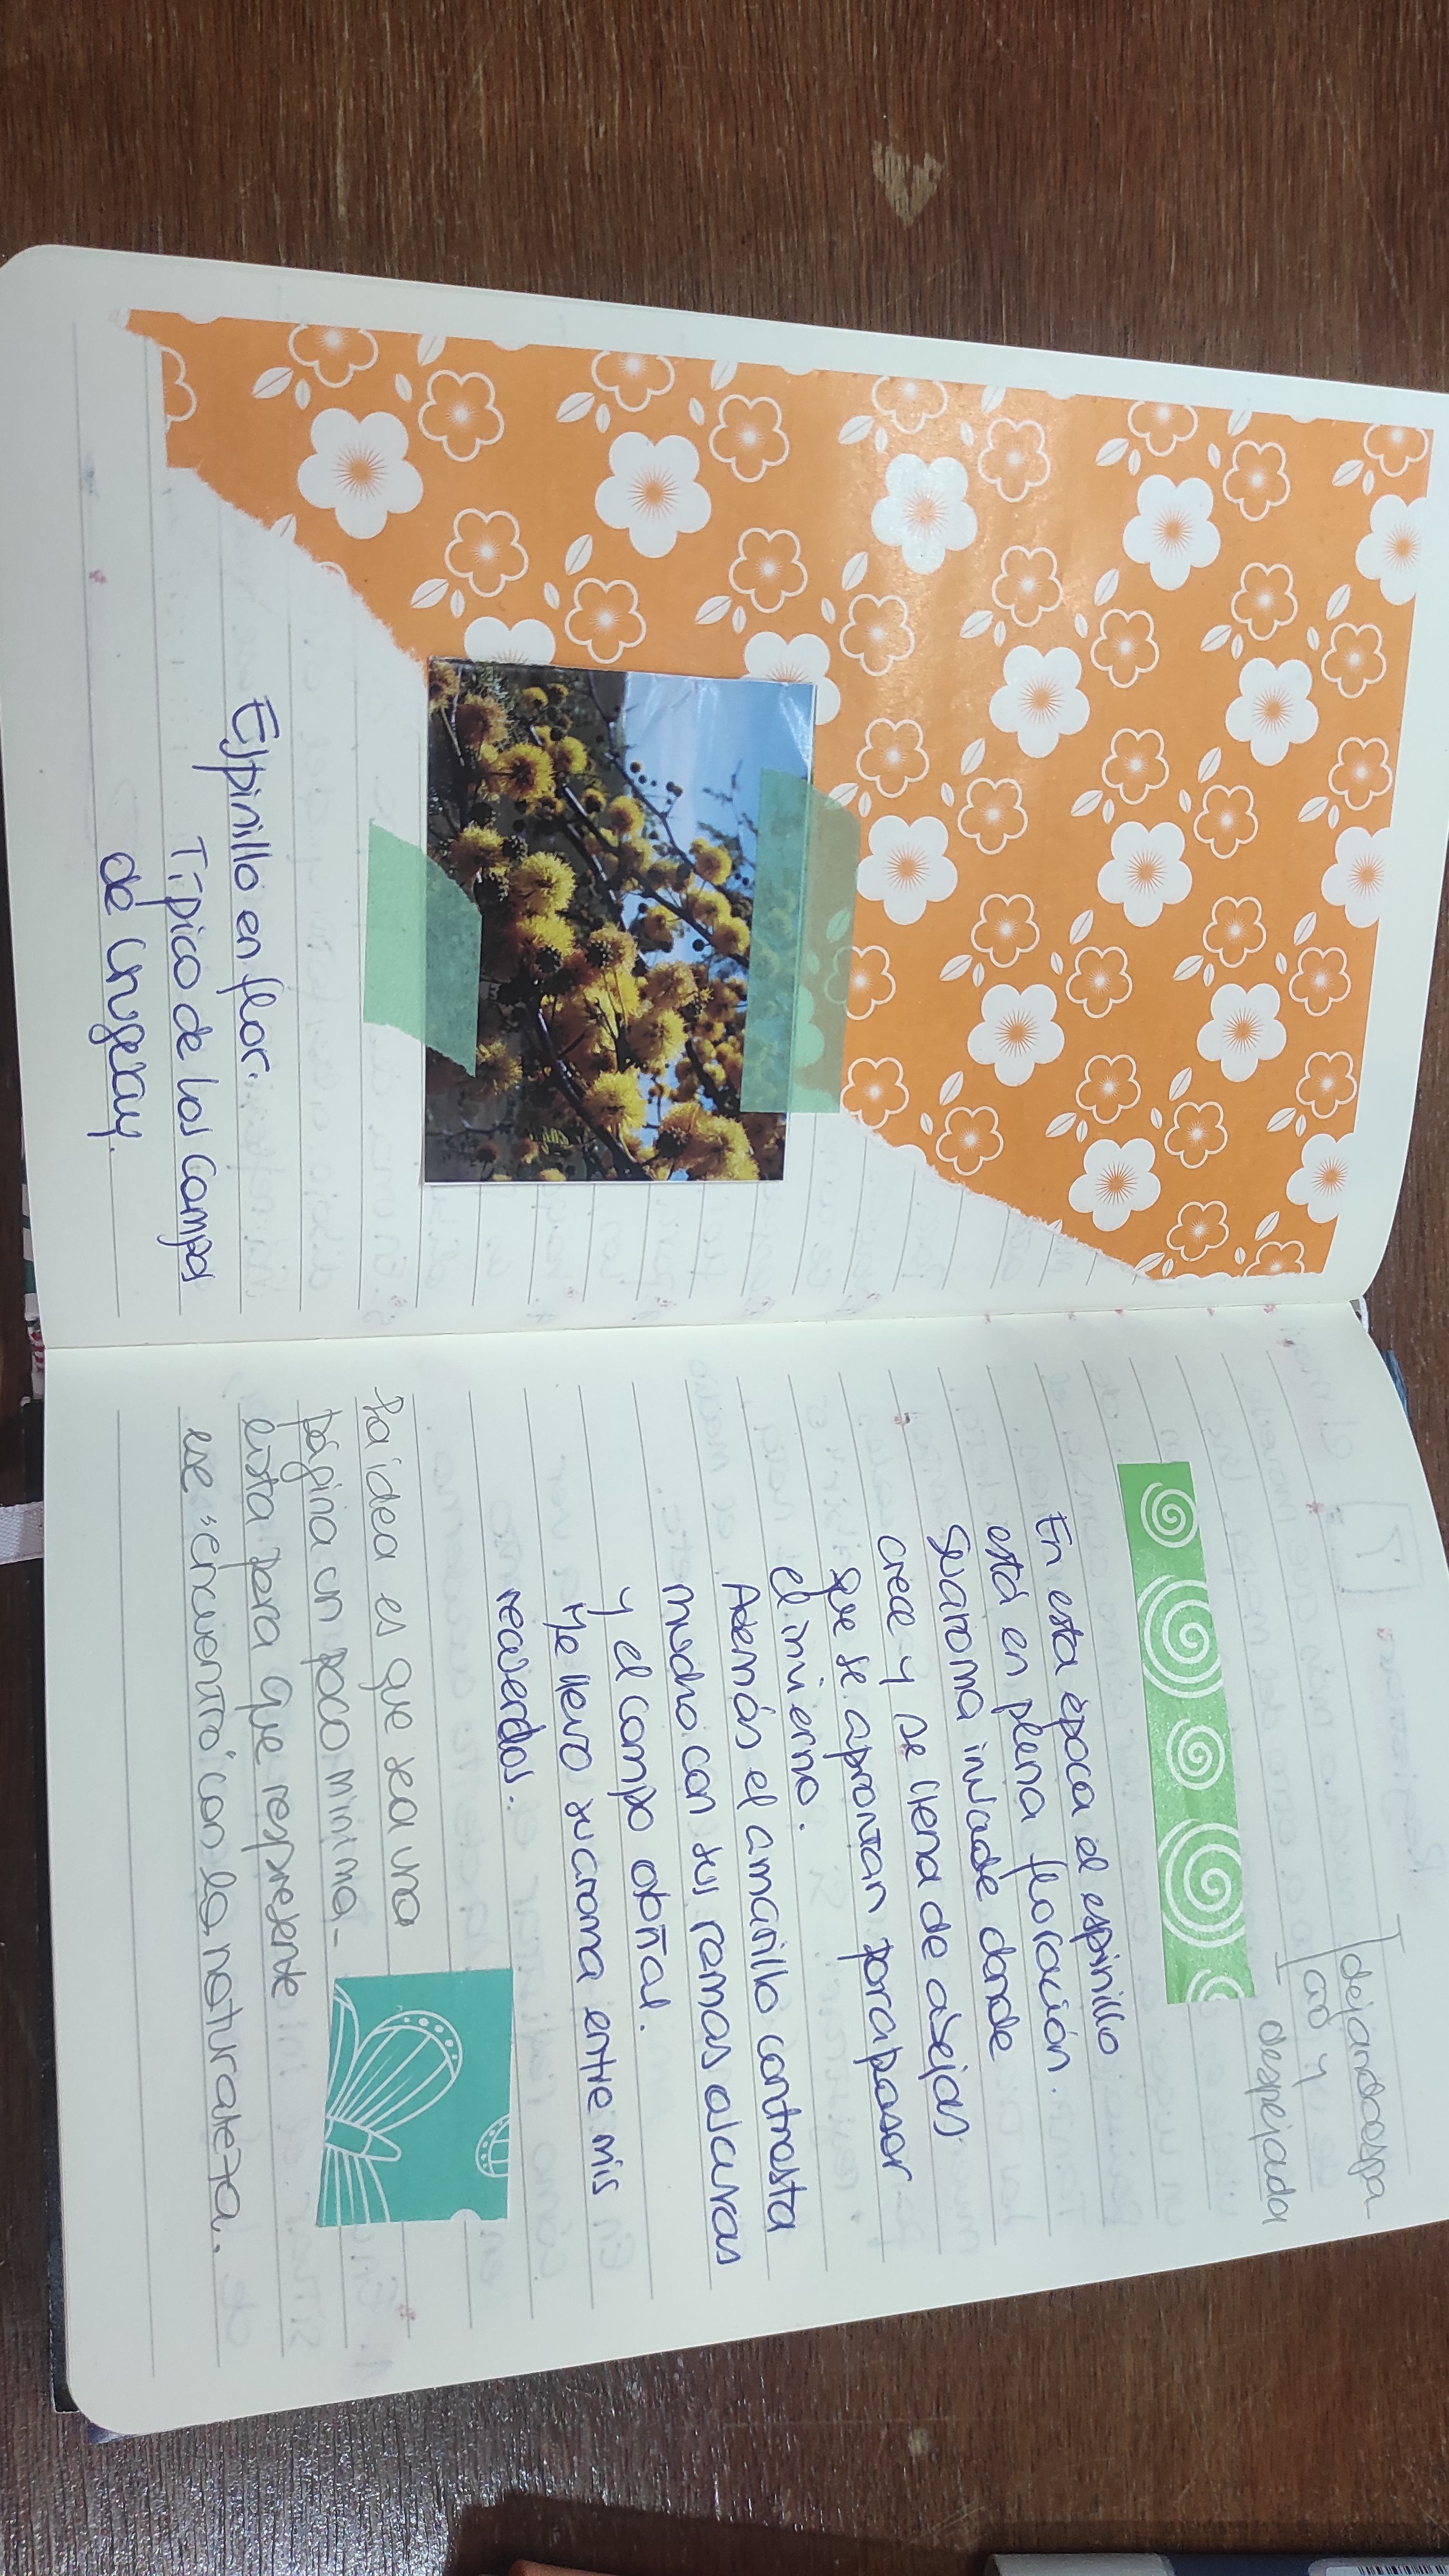 Espinillo en flor.
Típico de los campos
de Uruguay.
dejando espa
cio y
despejada
En esta época el espinillo
está en plena floración.
Su aroma invade donde
crece y se llena de abejas
que se aprontan para pasar
el invierno.
Además el amarillo contrasta
mucho con sus ramas oscuras
y el campo otoñal.
Me llevo su aroma entre mis
recuerdos.
La idea es que sea una
página un poco minima-
lista para que represente
ese "encuentro" con la naturaleza.